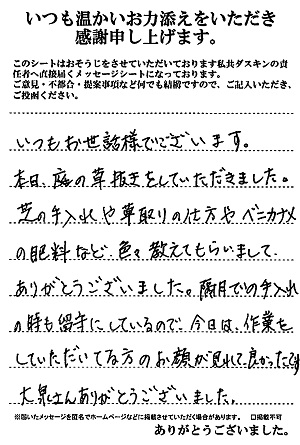 いつも温かいお力添えをいただき
感謝申し上げます。
このシートはおそうじをさせていただいております私共ダスキンの責
任者へ直接届くメッセージシートになっております。
ご意見・不都合・提案事項など何でも結構ですので、ご記入いただき、
ご投函ください。
いつもお世話様でございます。
本日、庭の草抜きをしていただきました。
芝の手入れや草取りの仕方やベニカナメ
の肥料など、色々教えてもらいまして、
ありがとうございました。隔月での手入れ
の時も留守にしているので、今日は、作業を
していただいてる方のお顔が見れて良かったです
大泉さんありがとうございました。
※頂いたメッセージを匿名でホームページなどに掲載させていただく場合があります。 口掲載不可
ありがとうございました。